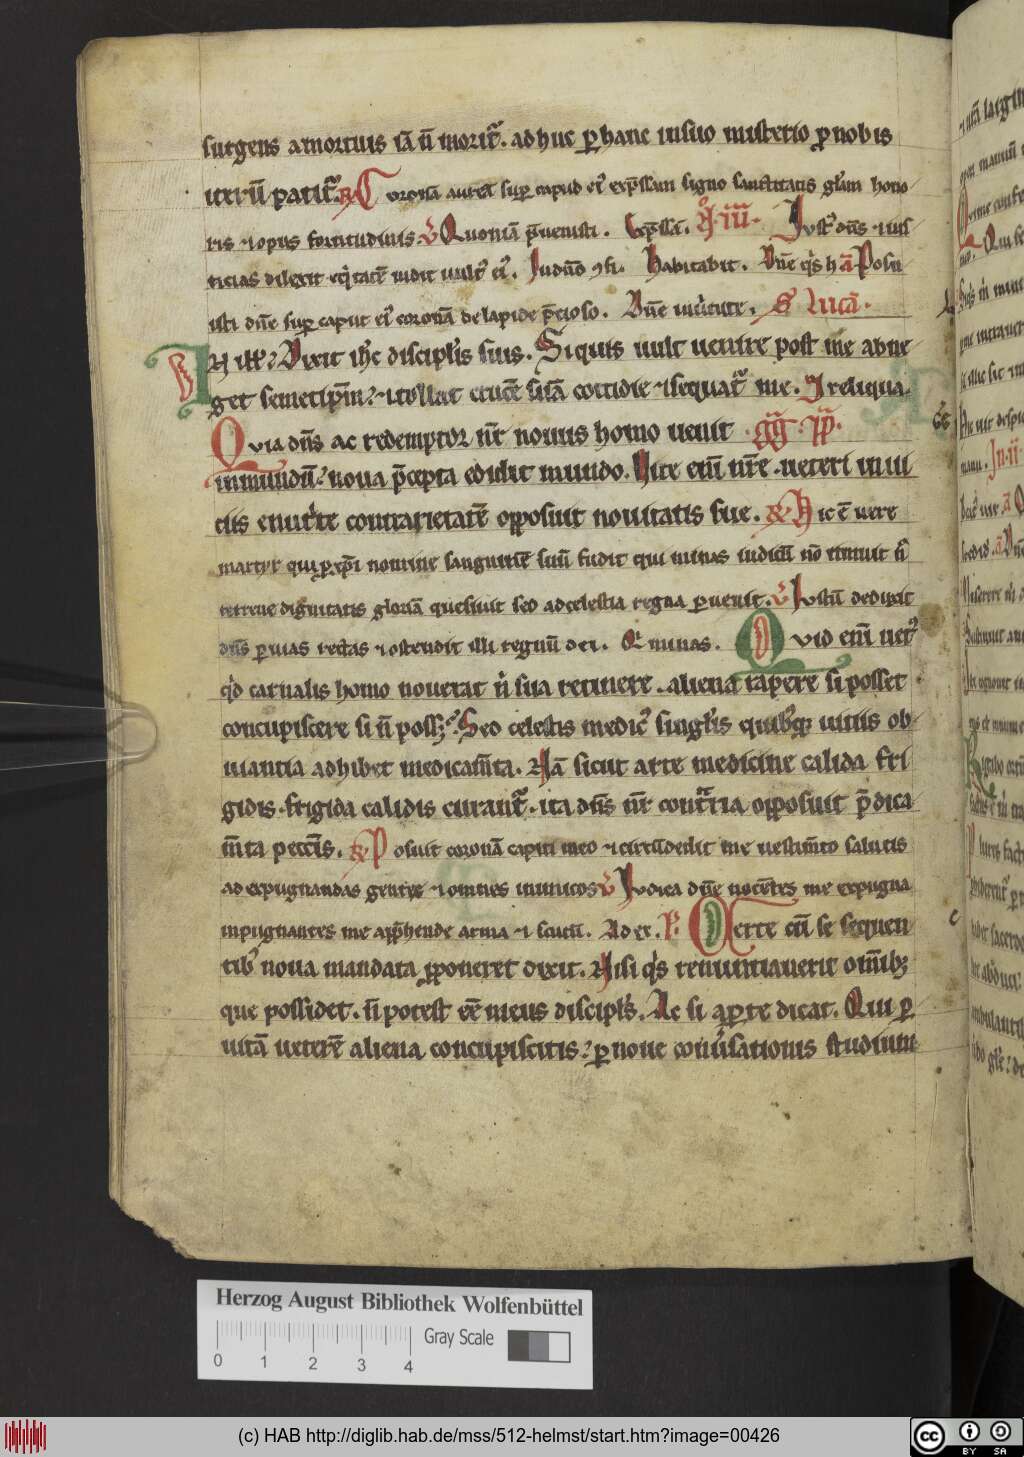 surgens amortuis iā n̄ morit᷑. adhuc ꝑ hanc insuo misterio ꝓ nobis
iterū patit᷑. R̶ Coronā aureā sup caput ei᷒ exp̄ssam signo sanctitatis gl̄am hono
ris ⁊ opus fortitudinis V̄ Quoniā p̄uenisti. Exp̄ssā. Iust᷒ dn̄s ⁊ ius
ticias dilexit eq̇tatē uidit uult᷒ ei᷒. In dn̄o ꝯfi. Habitabit. Dn̄e q̇s h ā Posu
isti dn̄e sup caput ei᷒ coronā de lapide p̄cioso. Dn̄e inuirtute. S̄ Lucā.
IN ill᷒. Dixit ih̄c discipl̄is suis. Si quis uult uenire post me abne
get semetip̄m. ⁊ tollat crucē suā cottidie ⁊ sequat᷑ me. I reliqua.
Quia dn̄s ac redemptor nr̄ nouus homo uenit . GG. PP.
in mundū. noua p̄cepta edidit mundo. Uite enī nr̄e . ueteri inui
ciis enutrite contrarietatē opposuit nouitatis sue. R̶ Hic ē uere
martyr qui ꝓ xp̄i nomine sanguinē suū fudit qui minas iudicū nō timuit n̄
terrene dignitatis gloriā quesiuit sed ad celestia regna ꝑuenit. V̄ Iustū deduxit
dn̄s ꝑ uias rectas ⁊ ostendit illi regnū dei. Qi minas. Quid enī uet᷒
qd̄ carnalis homo nouerat n̄ sua retinere . aliena rapere si posset
concupiscere si n̄ poss;. Sed celestis medic᷒ singlis quibusq; uitiis ob
uiantia adhibet medicam̄ta. Nā sicut arte medicine calida fri
gidis . frigida calidis curant᷑ . ita dn̄s nr̄ cont᷑ria opposuit p̄dica
m̄ta peccīs. R̶ Posuit coronā capiti meo ⁊ circūdedit me uestim̄to salutis
ad expugnandas gentes ⁊ omnes inimicos V̄ Iudica dn̄e nocētes me expugna
inpugnantes me app̄hende arma ⁊ scutū. Ad ex. P. Certe cū se sequen
tib᷒ noua mandata ꝓponeret dixit. Nisi q̇s renuntiauerit om̄ib;
que possidet . n̄ potest ēe meus discipl̄s. Ac si aꝑte dicat. Qui ꝑ
uitā ueterē aliena concupiscitis. ꝑ noue conuersationis studium
Herzog August Bibliothek Wolfenbüttel
Gray Scale
0 1 2 3 4
(c) HAB http://diglib.hab.de/mss/512-helmst/start.htm?image=00426
cc BY SA